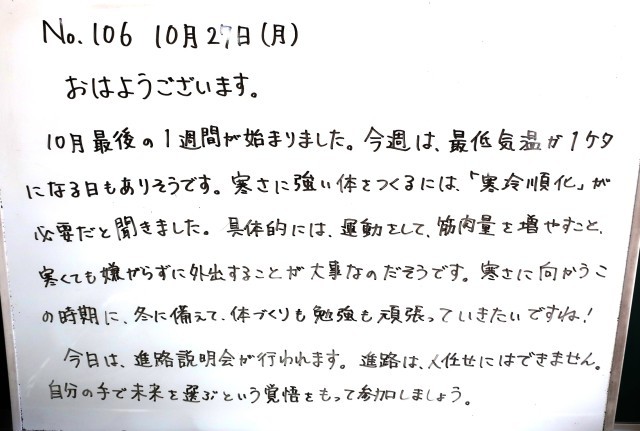 No.106 10月27日(月)
おはようございます。
10月最後の1週間が始まりました。今週は、最低気温が1ケタ
になる日もありそうです。寒さに強い体をつくるには、「寒冷順化」が
必要だと聞きました。具体的には、運動をして、筋肉量を増やすこと、
寒くても嫌がらずに外出することが大事なのだそうです。寒さに向かうこ
の時期に、冬に備えて、体づくりも勉強も頑張っていきたいですね!
今日は、進路説明会が行われます。進路は、人任せにはできません。
自分の手で未来を選ぶという覚悟をもって参加しましょう。